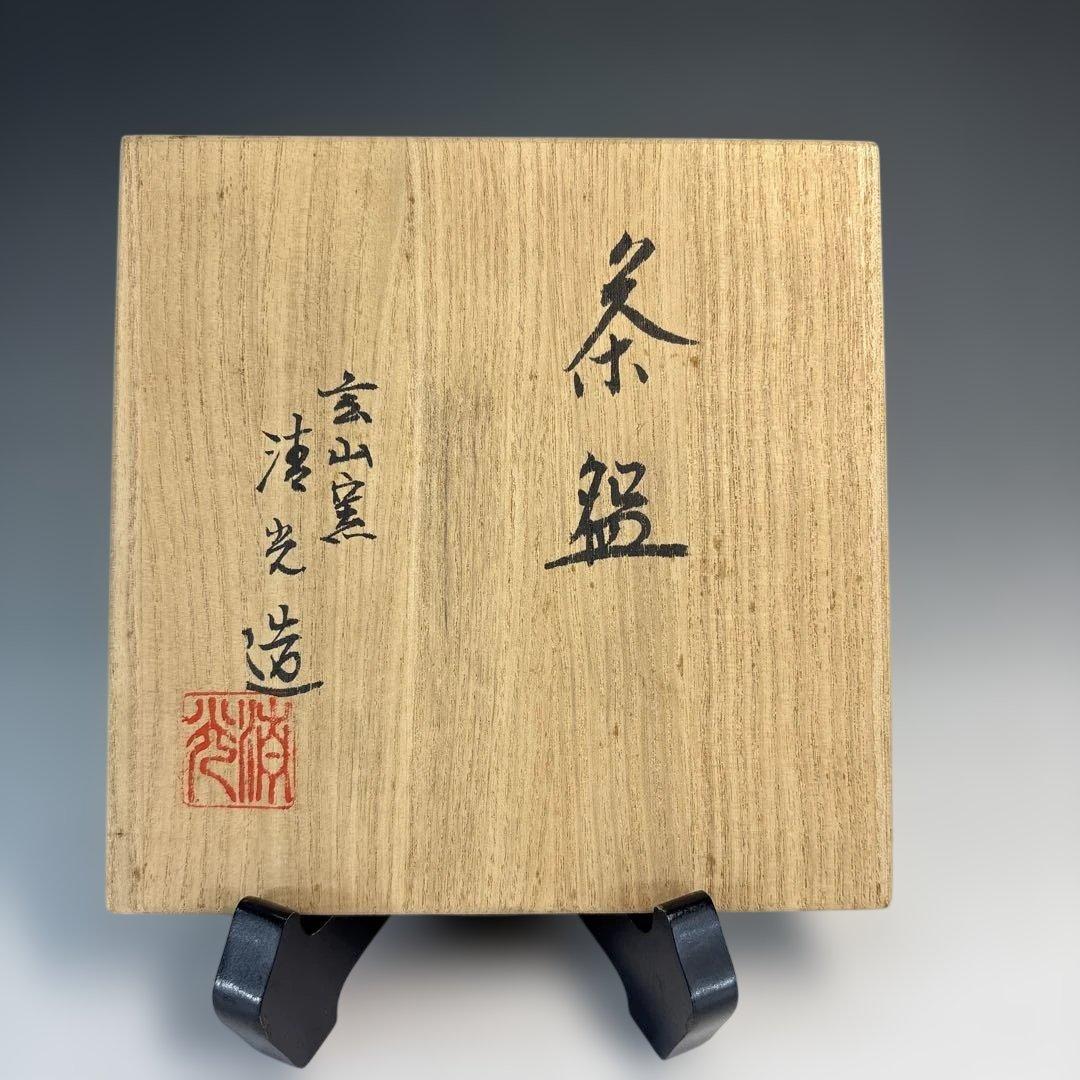 茶盌
玄山窯
清光造
清光